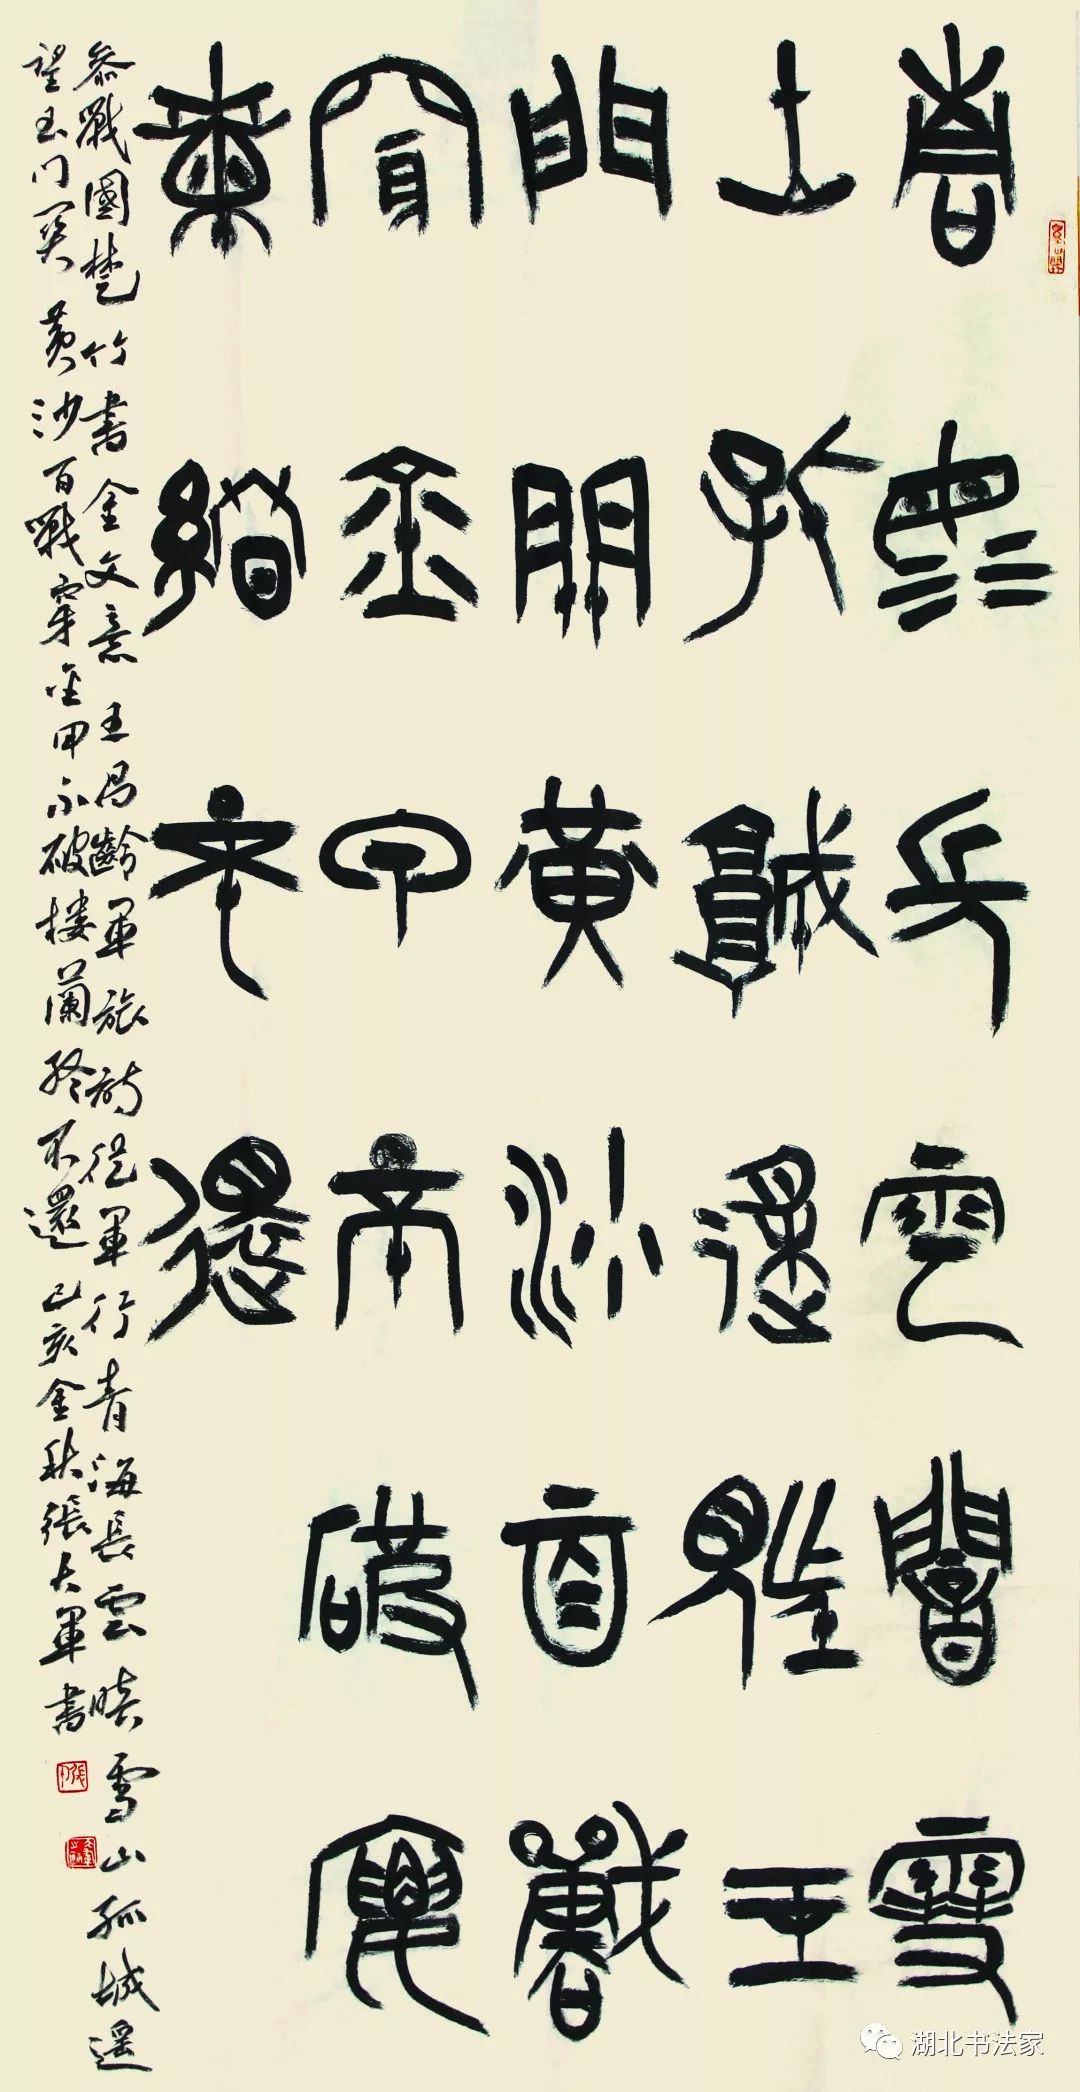 青海長雲暗雪
山孤城遙望玉
門關黃沙百戰
穿金甲不破樓
蘭終不還
參戰國楚竹書金文意王昌齡軍旅詩從軍行青海長雲暗雪山孤城遙
望玉门关黄沙百戰穿金甲不破楼蘭終不還己亥金秋張大軍書
湖北书法家